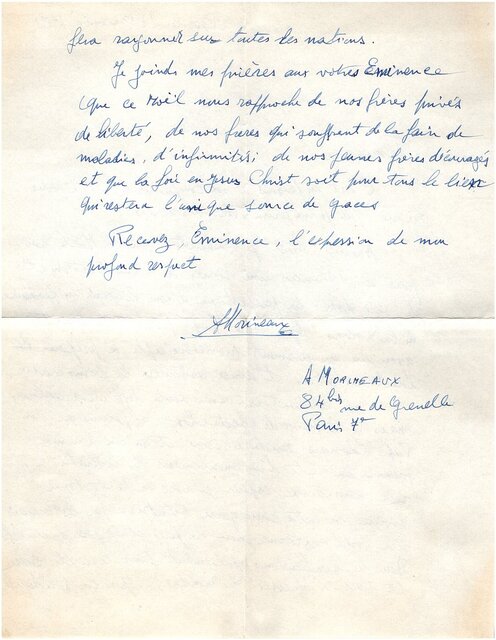 fera rayonner sur toutes les nations.
Je joinds mes prières aux votres Eminence
Que ce Noël nous rapproche de nos frères privés
de liberté, de nos freres qui souffrent de la faim de
maladies, d'infirmités; de nos jeunes frères découragés
et que la foi en Jesus Christ soit pour tous le lien
qui restera l'unique source de graces
Recevez, Eminence, l'expession de mon
profond respect
AMorineaux
A MORINEAUX
84bis rue de Grenelle
Paris 7e